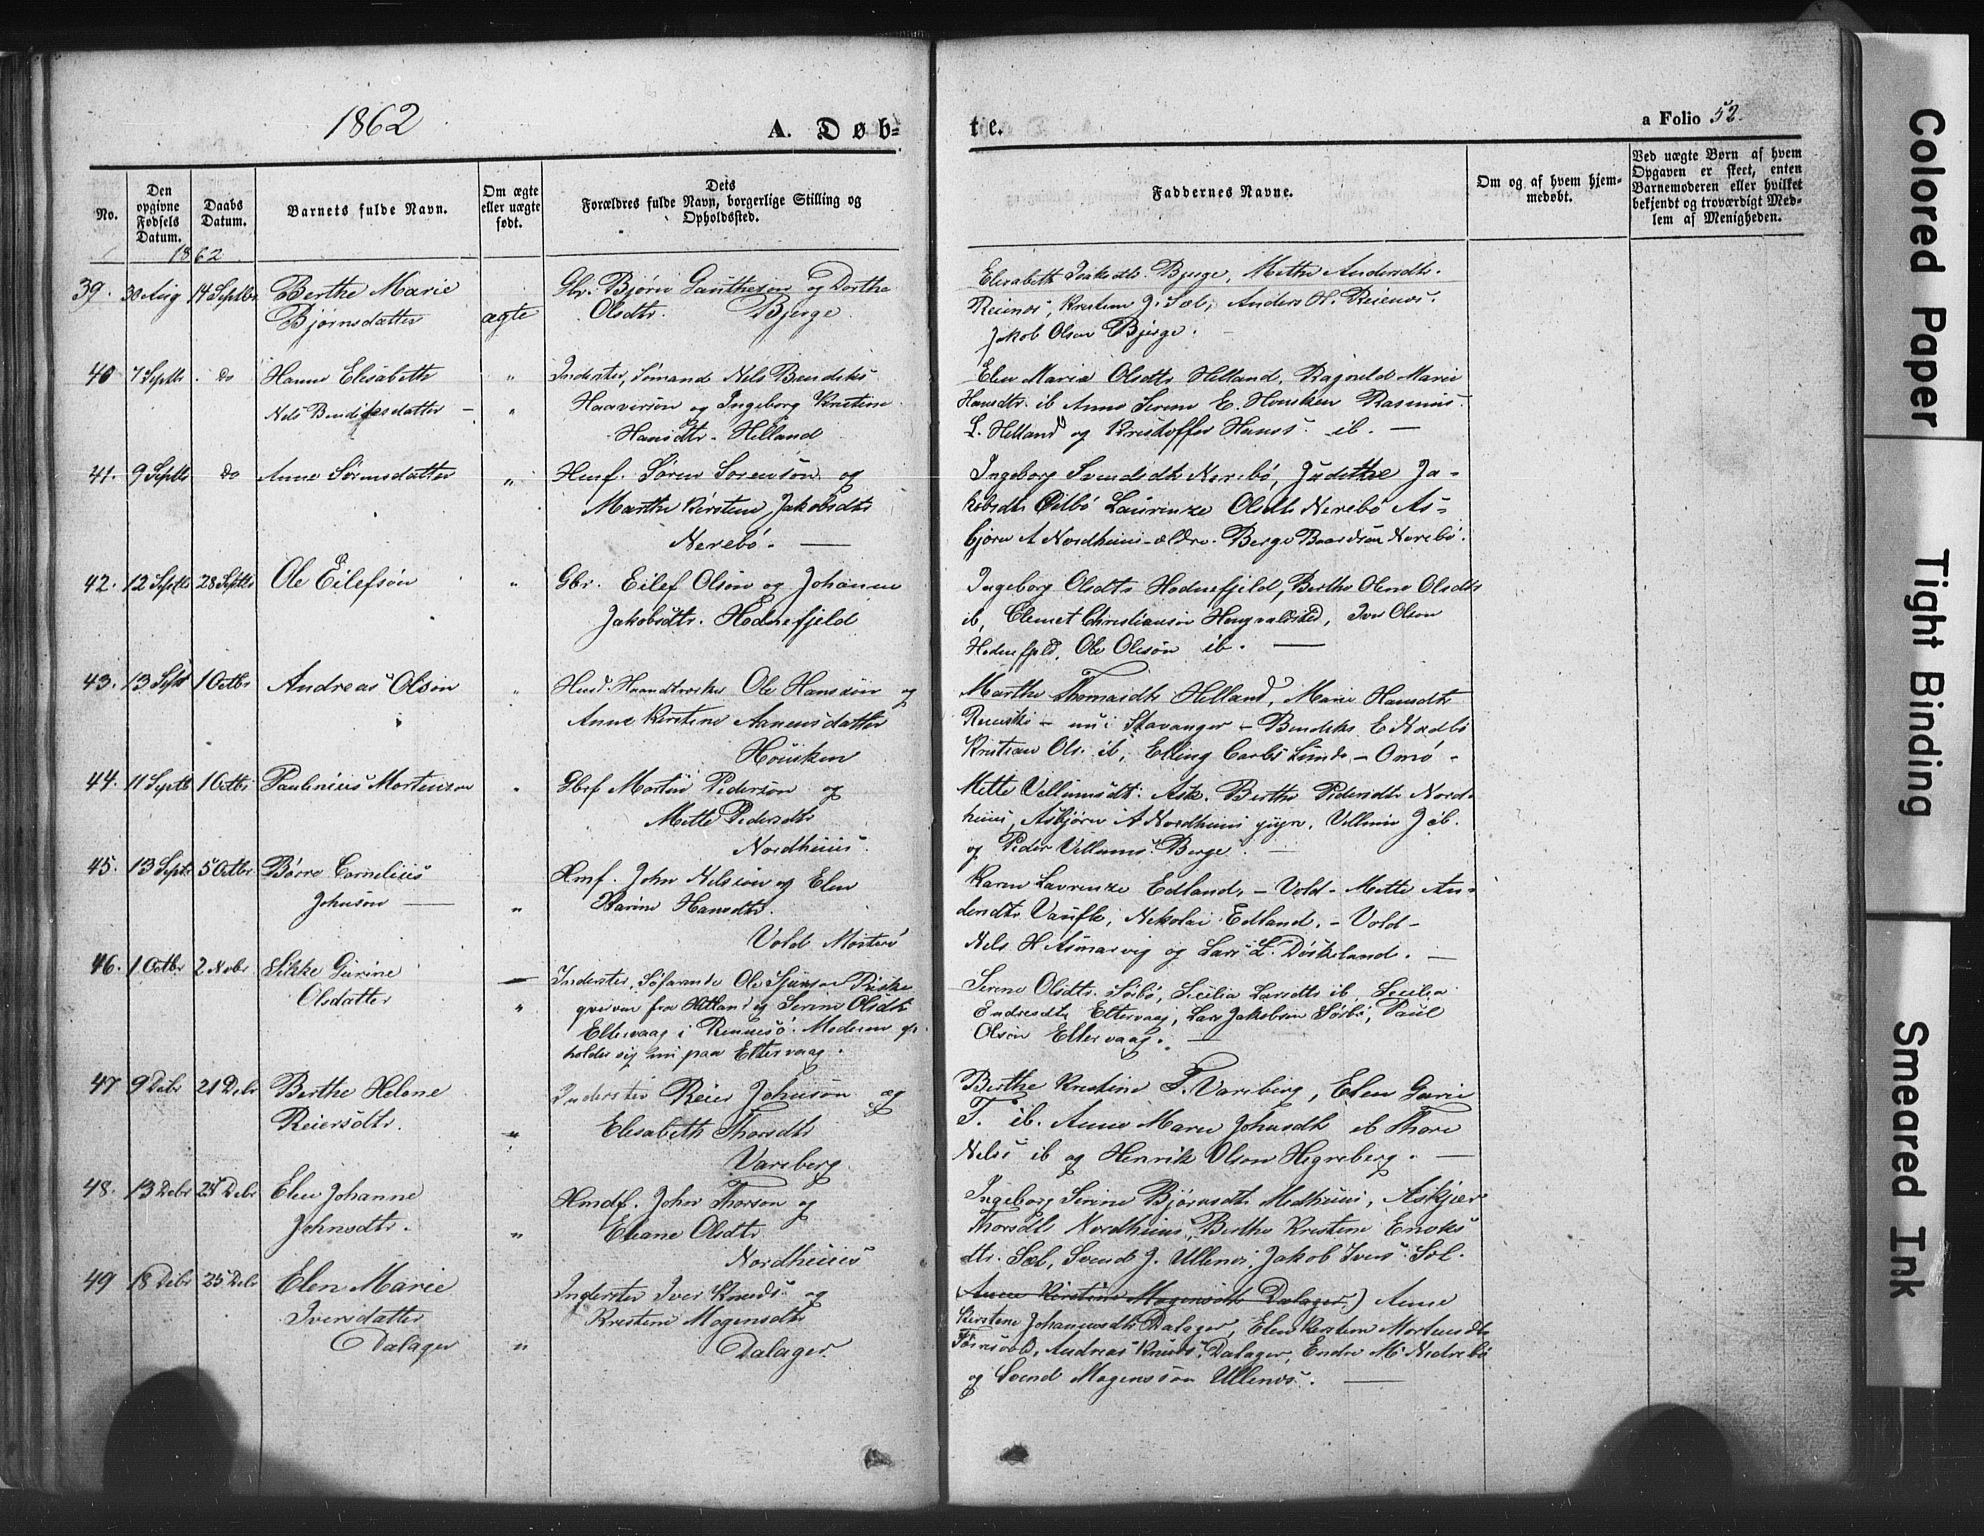 1862
A. Døb-
te.
a Folio 52.
No.
Den opgivne Fødsels Datum.
Daabs Datum.
Barnets fulde Navn.
Om ægte eller uægte født.
Dets Forældres fulde Navn, borgerlige Stilling og Opholdssted.
Faddernes Navne.
Om og af hvem hjemmedøbt.
Ved uægte Børn af hvem Opgaven er skeet, enten Barnemoderen eller hvilket bekjendt og troværdigt Medlem af Menigheden.
1862
39. 30 Aug 14 Septbr Berthe Marie
Bjørnsdatter ægte
Gbr. Bjørn Gauthesen og Dorthe
Olsdtr. Bjerge
Elisabeth Bjerge, Mette Andersdtr.
Reienes, Kristen J. Sæl, Anders H. Reienes.
Jakob Olsen Bjerge.
40 7 Septbr. Do Hanne Elisabeth
Nels Bendiksdatter - "
Inderster, Sømand Nels Bendiks
Haaversøn og Ingeborg Kristine
Hansdtr. Helland
Elen Maria Olsdtr Helland, Ragnilde Marie
Hansdtr. ib Anne Serene E. Housken Rasmus
L. Helland og Kristoffer Hans. ib. -
41. 9 Septbr Do Anne Sørensdatter "
Hmf. Søren Sørensøn og
Marthe Kirstine Jakobsdtr
Nerebø. -
Ingeborg Svendsdtr Nerebø, Judithe Ja-
kobsdtr Østbø Laurenze Olsdtr Nerebø As-
bjørn A Nordheim ældre. Berge Baardsøn Nerebø.
42. 12 Septbr 28 Septbr Ole Eilefsøn "
Gbr. Eilef Olsøn og Johanne
Jakobsdtr. Hodnefjeld
Ingeborg Olsdtr Hodnefjeld, Berthe Olene Olsdtr
ib, Clemet Christiansøn Hougvaldstad, Iver Olsøn
Hodnefjeld, Ole Olesøn ib. -
43. 13 Sept 1 Octbr Andreas Olsøn "
Husd. Haandværker Ole Hansøn og
Anne Kirstine Aanensdatter
Housken
Marthe Thomasdtr Helland, Marie Hansdtr
- nu i Stavanger - Bendiks E Nordbø
Kristian Ols. ib, Elling Carls Lunde - Omø -
44. 11 Septb 1 Octbr Paulinius Mortensøn "
Gbrf Morten Pedersøn og
Mette Pedersdtr
Nordheims.
Mette Villumsdtr. Ask. Berthe Pedersdtr Nord-
heims, Asbjørn A Nordheims yngre, Villum J ib.
og Peder Villums. Berge. -
45. 13 Septr 5 Octbr Børre Cornelius
Johnsøn - "
Hmf. John Nelsøn og Elen
Karine Hansdtr.
Vold Mosterø
Karen Lavrenze Edland, - Vold - Mette An-
dersdtr. , Nikolai Edland. - Vold -
Nels H Asmarvig og Lars L. Døskeland. -
46. 1 Octbr 2 Nobr Sikke Gurine
Olsdatter "
Inderster, Søfarende Ole Sjursøn Piske
fra Hetland og Serene Olsdtr
Eltervaag i Rennesø. Moderen op-
holder sig nu paa Eltervaag.
Serene Olsdtr. Sørbø, Secilia Larsdtr ib, Secilia
Endresdtr Eltervaag, Lars Jakobsen Sørbø, Paul
Olsøn Eltervaag. -
47 9 Debr 21 Debr Berthe Helene
Reiersdtr. "
Inderster Reier Johnsøn og
Elisabeth Thorsdtr
Varsberg
Berthe Kristine T. Varsberg, Elen Gurie
T. ib. Anne Marie Johnsdtr ib Thore
Nels. ib og Henrik Olson Hegreberg. -
48. 13 Debr 25 Debr Elen Johanne
Johnsdtr. "
Hmdf. John Thorsøn og
Eliane Olsdtr
Nordheims
Ingeborg Serine Bjørnsdtr. Medheims, Askjær
Thorsdtr Nordheims, Berthe Kristine Enoks
dtr. Sæl, Svend J. Ullenes, Jakob Ivers. Sæl.
49 18 Debr 25 Debr Elen Marie
Iversdatter
Dalager "
Inderster Iver Knuds. og
Kristine Mogensdtr
Dalager.
Anne Kirstine Mogensdtr Dalager,) Anne
Kirstine Johannesdtr Dalager, Elen Kirstine Mortensdtr
, Andreas Knuds. Dalager, Endre M Nedrebø
og Svend Mogensson Ullenes. -
Colored Paper
Tight Binding
Smeared Ink